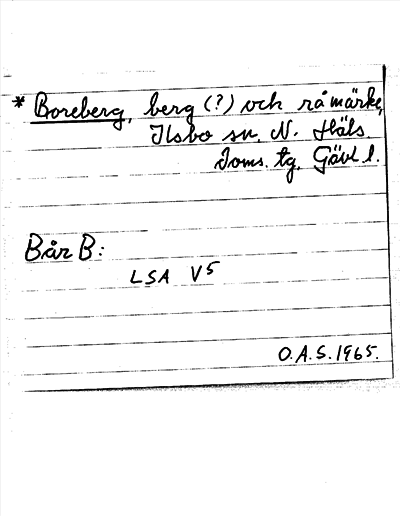 * Boreberg, berg (?) och råmärke,
Ilsbo sn. N. Häls.
Doms. tg. Gävl l.
Bår B:
LSA V5
O.A.S. 1965.